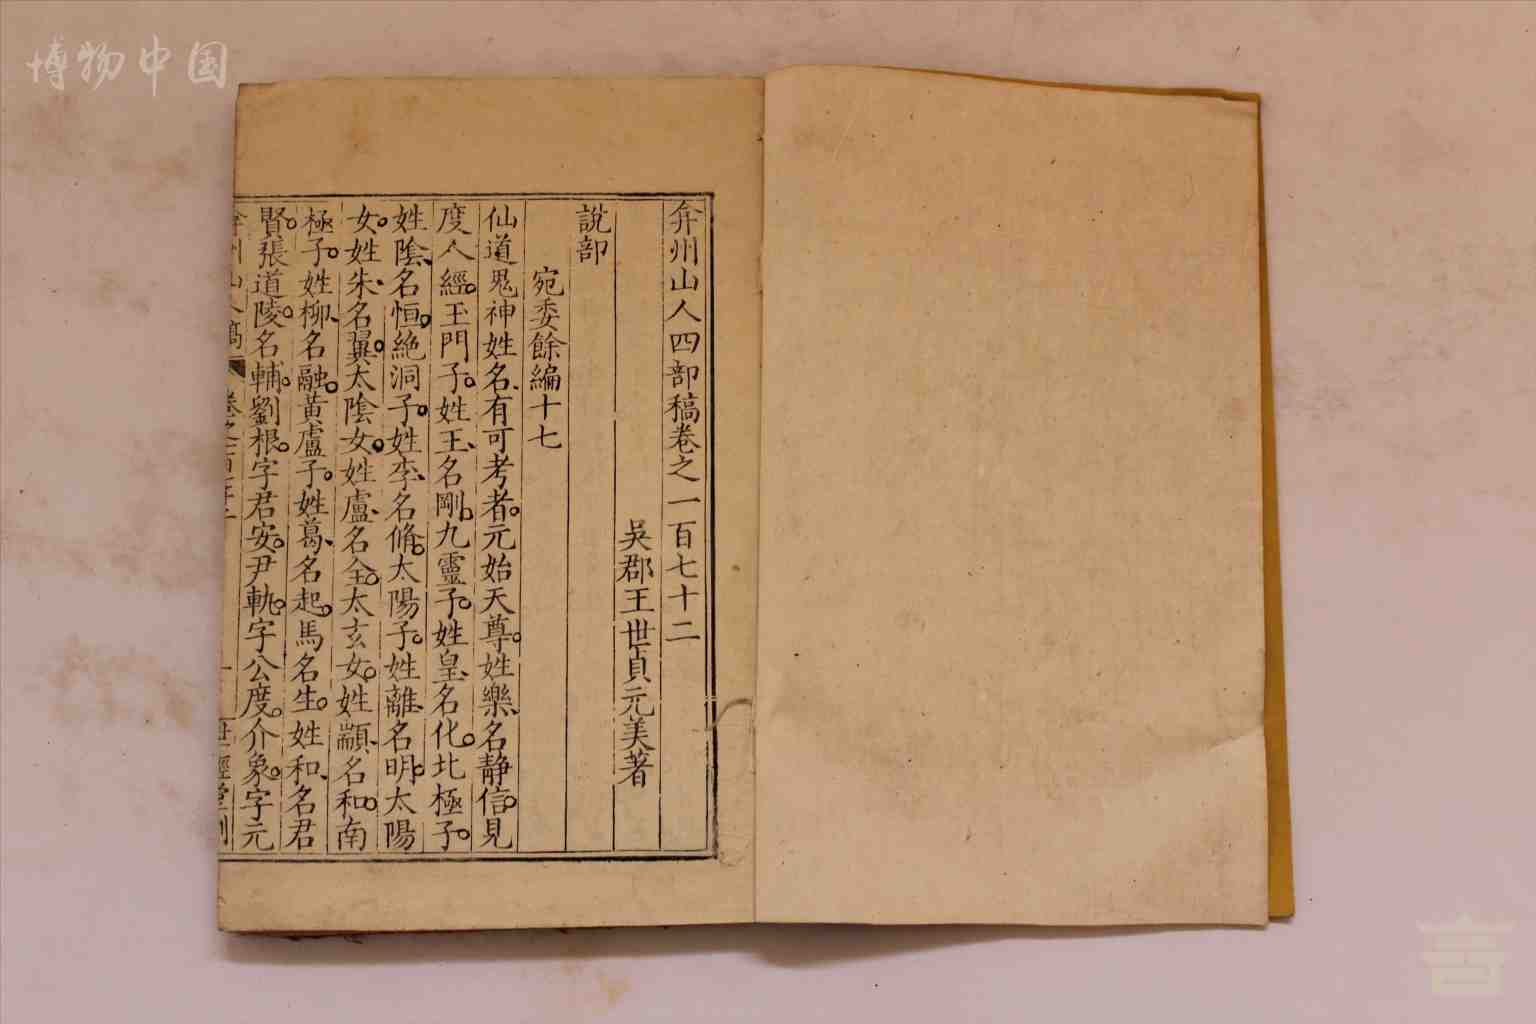 博物中国
弇州山人四部稿卷之一百七十二
吳郡王世貞元美著
說部
宛委餘編十七
仙道鬼神姓名、有可考者。元始天尊。姓樂、名靜信。見
度人經。玉門子。姓王、名剛。九靈子。姓皇、名化。北極子。
姓陰、名恒。絶洞子。姓李、名脩。太陽子。姓離、名明。太陽
女。姓朱、名翼。太陰女。姓盧、名全。太玄女。姓顓、名和。南
極子。姓柳、名融。黃盧子。姓葛、名起。馬名生。姓和、名君
賢。張道陵。名輔。劉根。字君安。尹軌。字公度。介象。字元